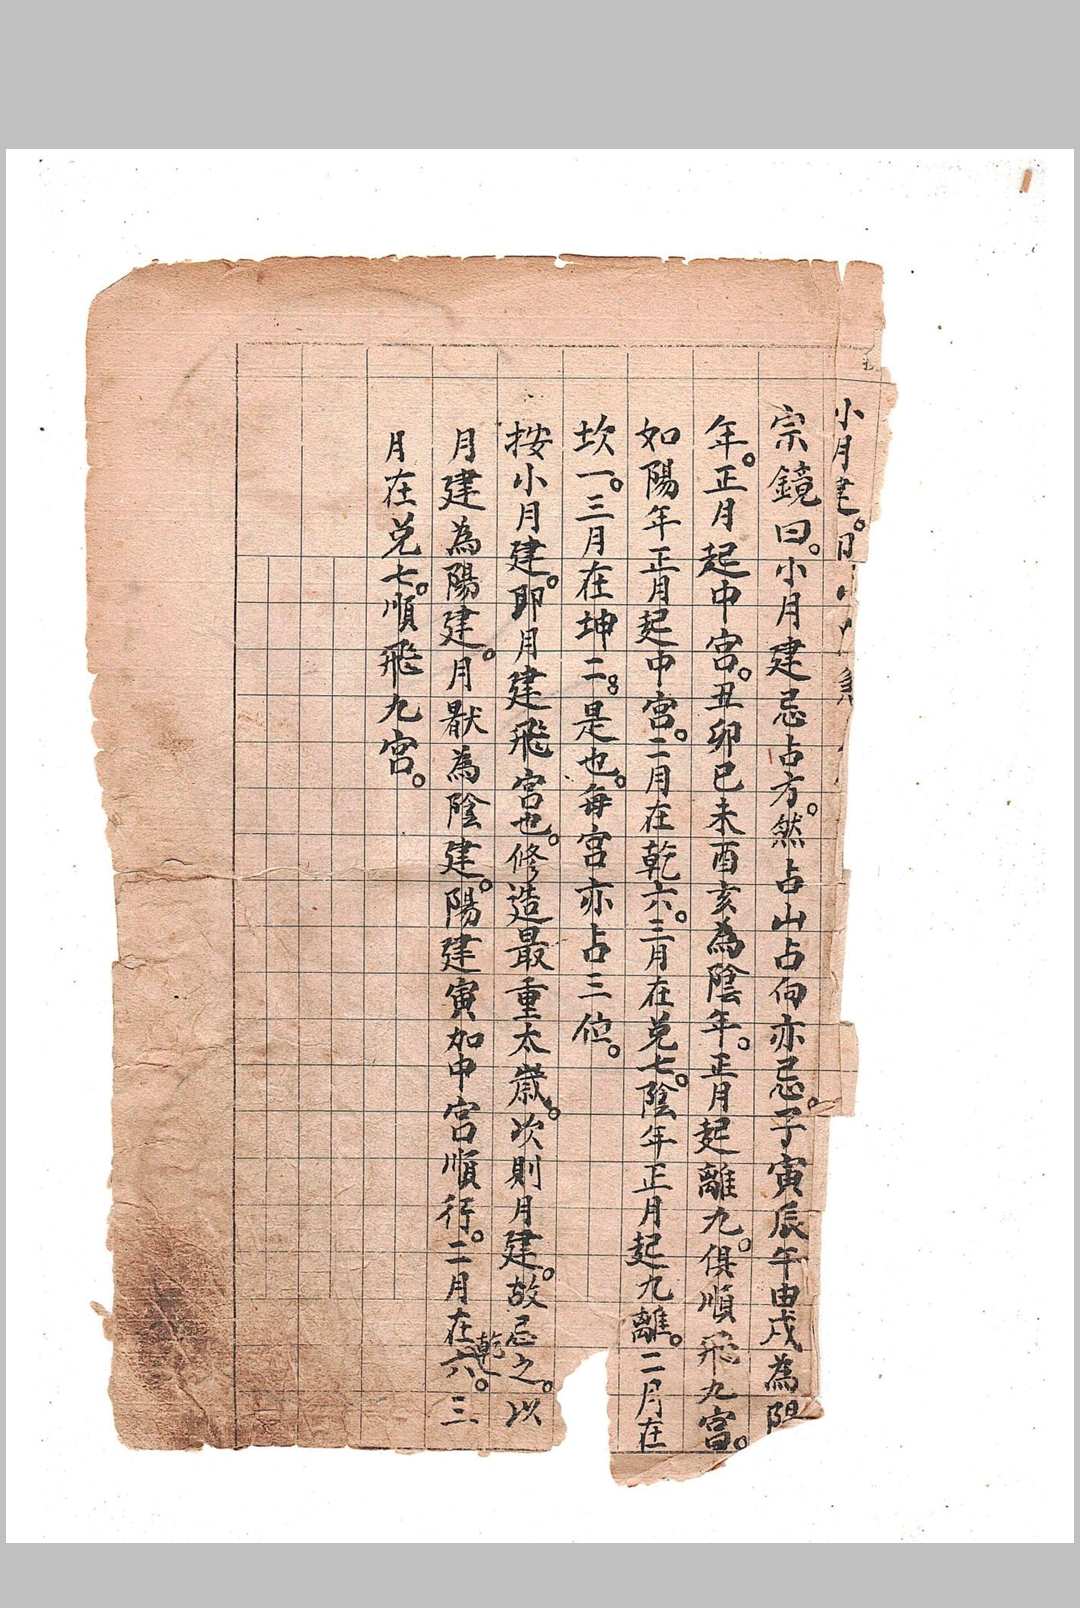 小月建。
宗鏡曰。小月建忌占方。然占山占向亦忌。子寅辰午申戌為陽
年。正月起中宮。丑卯巳未酉亥為陰年。正月起離九。俱順飛九宮。
如陽年正月起中宮。二月在乾六。三月在兌七。陰年正月起九離。二月在
坎一。三月在坤二。是也。每宮亦占三位。
按小月建。即月建飛宮也。修造最重太歲。次則月建。故忌之。以
月建為陽建。月厭為陰建。陽建寅加中宮順行。二月在乾六。三
月在兌七。順飛九宮。